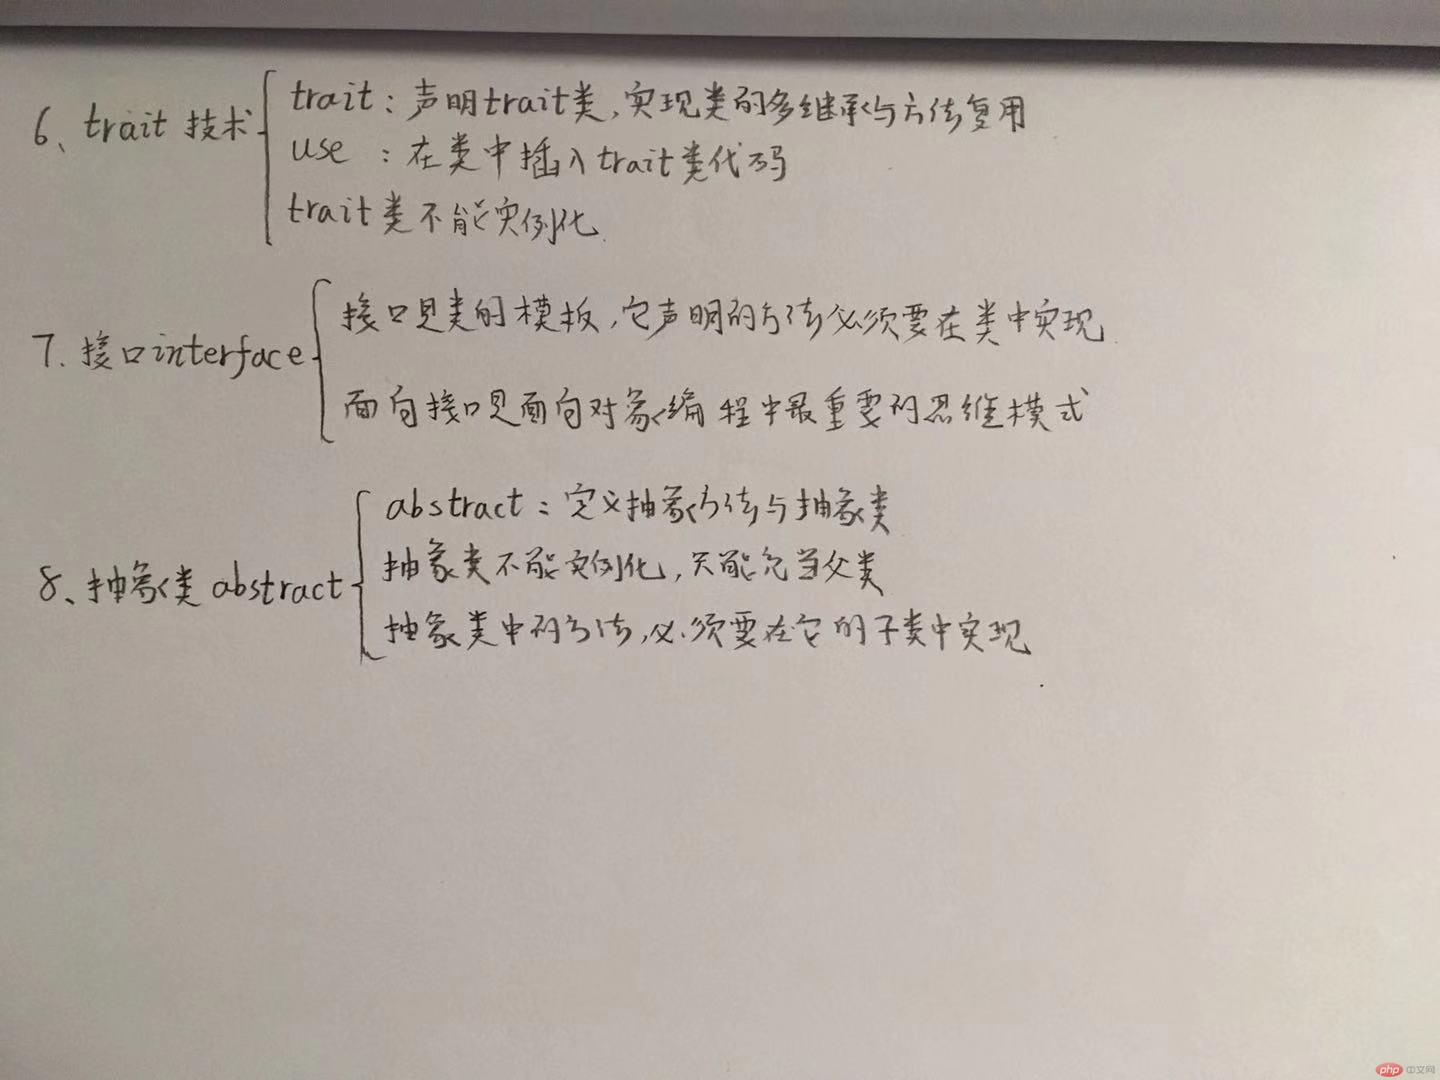 6、trait 技术
trait：声明trait类，实现类的多继承与方法复用
use ：在类中插入trait类代码
trait类不能实例化.
7. 接口interface
接口是类的模板，它声明的方法必须要在类中实现.
面向接口是面向对象编程中最重要的思维模式
8、抽象类 abstract
abstract：定义抽象方法与抽象类
抽象类不能实例化，只能充当父类
抽象类中的方法，必须要在它的子类中实现
php 中文网